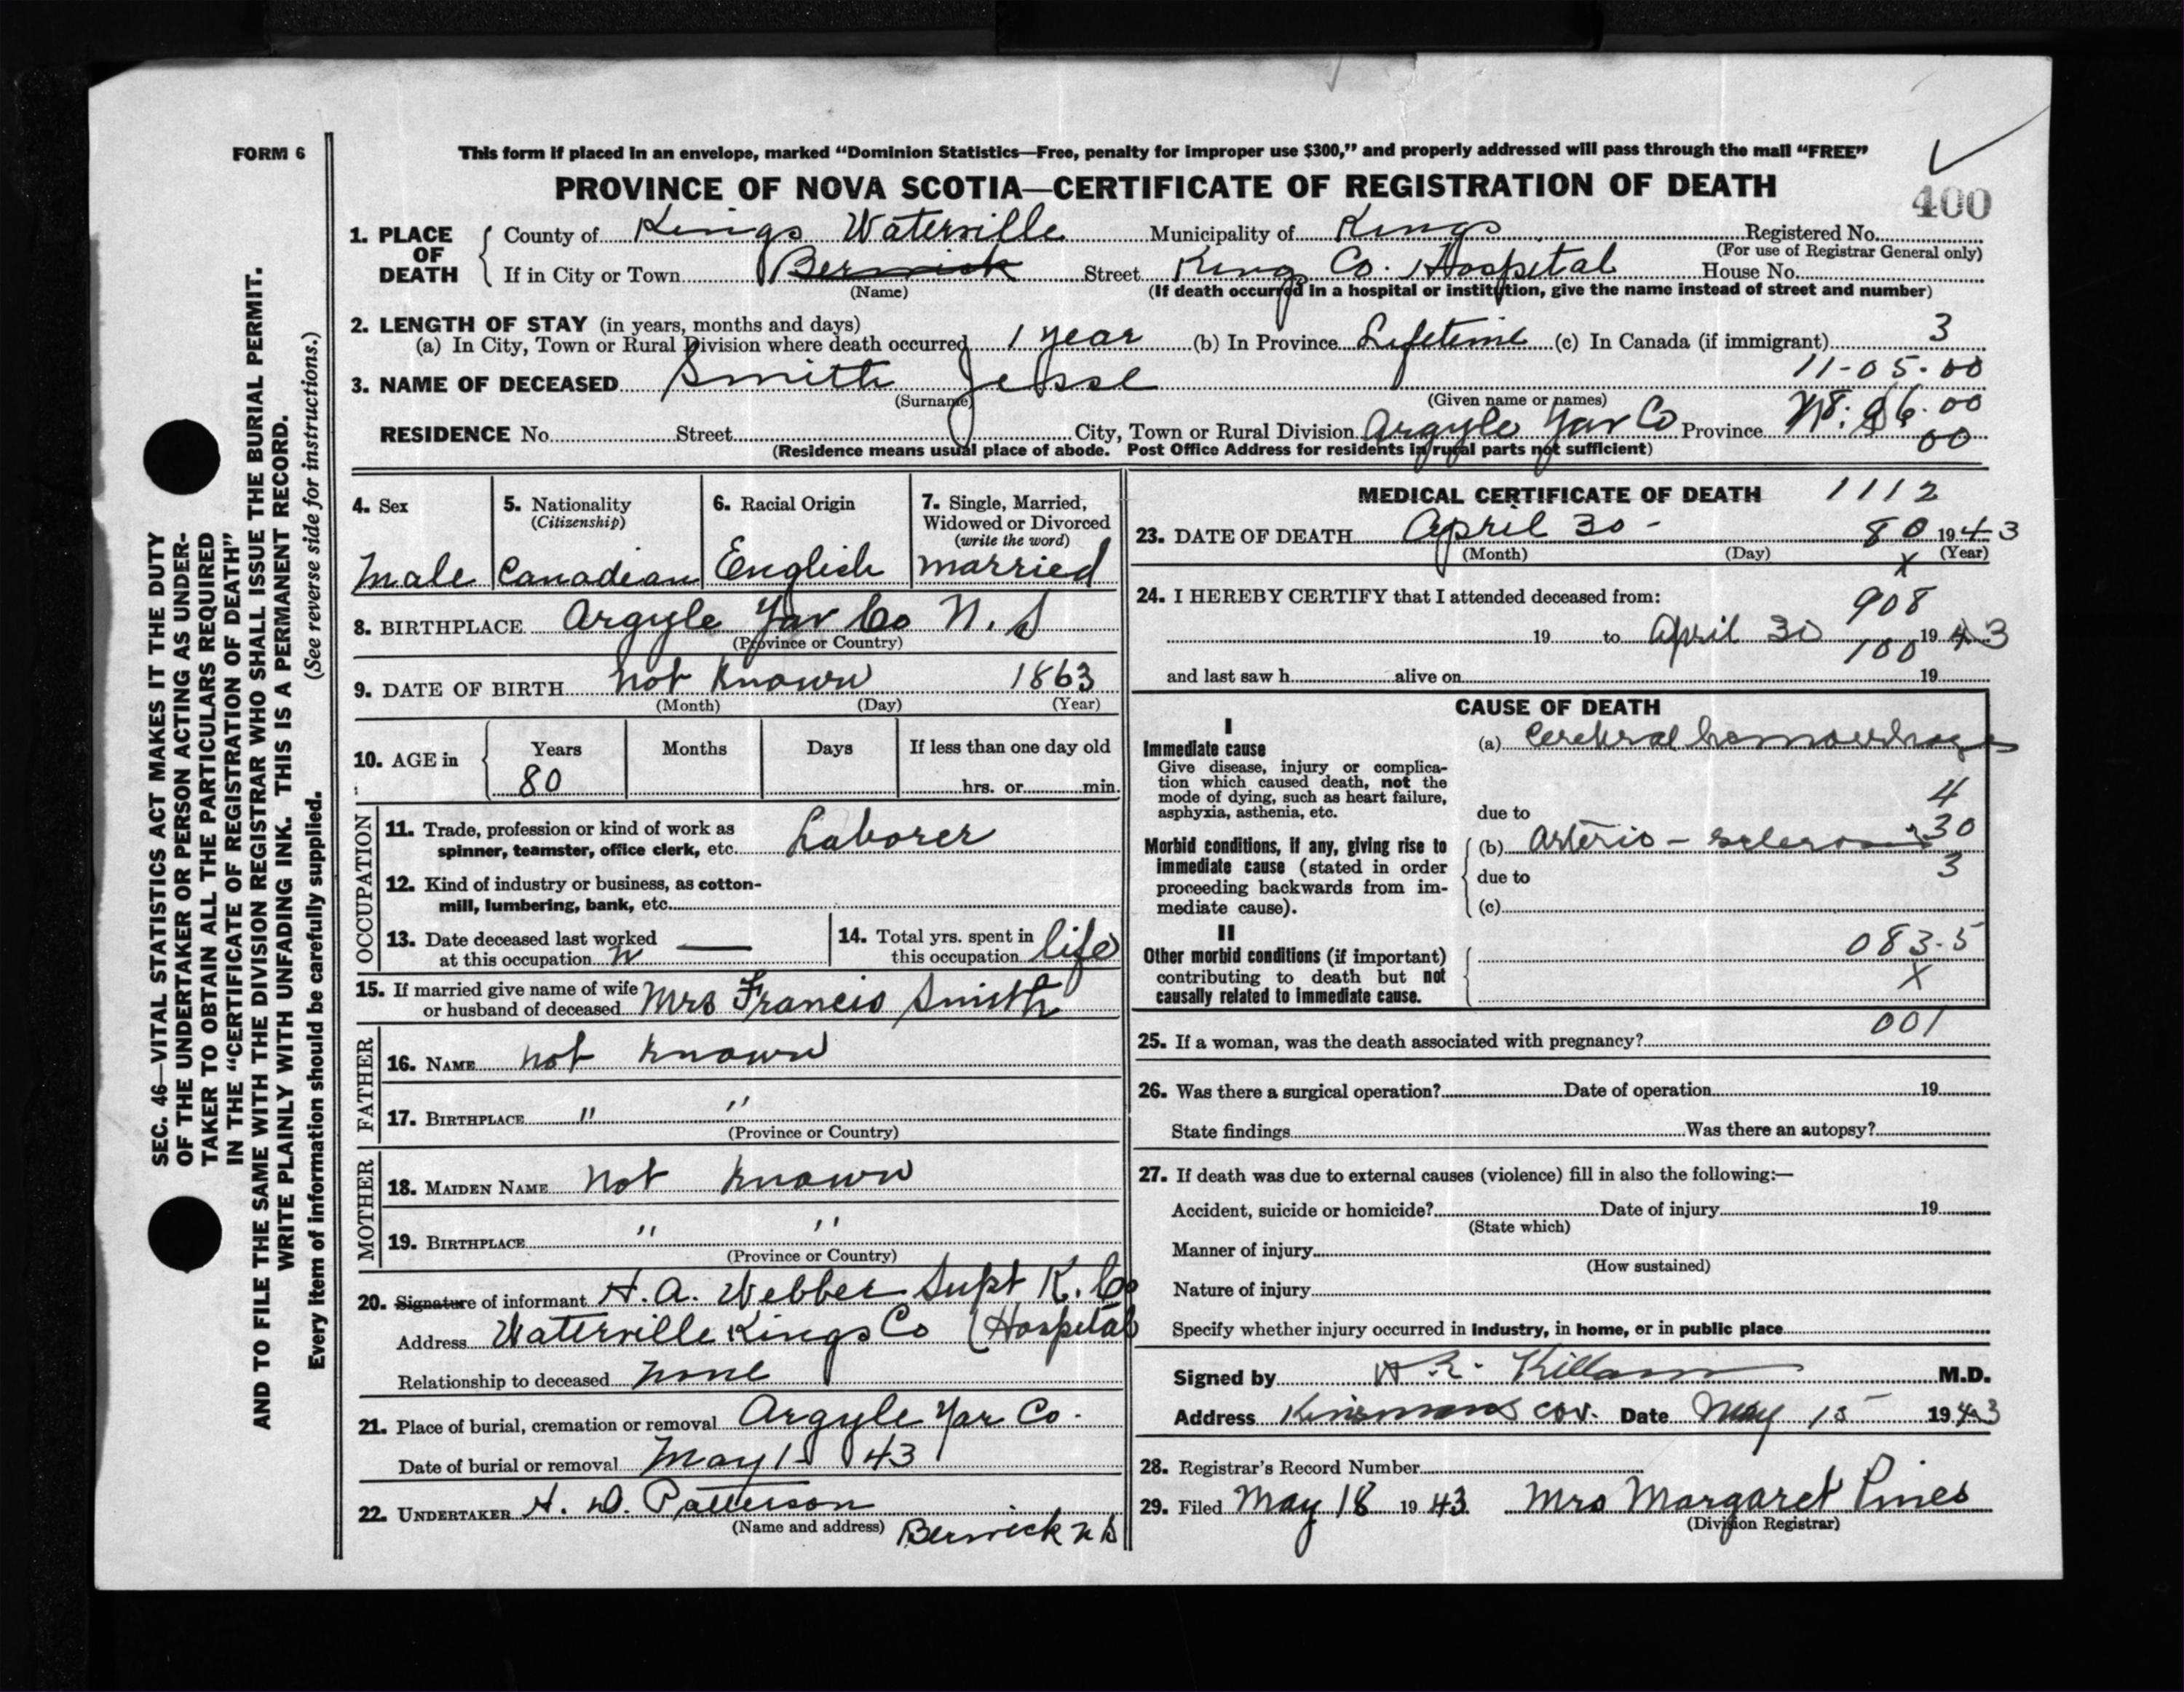 FORM 6
This form if placed in an envelope, marked “Dominion Statistics—Free, penalty for improper use $300,” and properly addressed will pass through the mail “FREE”
PROVINCE OF NOVA SCOTIA—CERTIFICATE OF REGISTRATION OF DEATH
400
1. PLACE OF DEATH
County of Kings Waterville Municipality of Kings Registered No.
(For use of Registrar General only)
If in City or Town Berwick Street King Co. Hospital House No.
(Name) (If death occurred in a hospital or institution, give the name instead of street and number)
2. LENGTH OF STAY (in years, months and days)
(a) In City, Town or Rural Division where death occurred 1 year (b) In Province Lifetime (c) In Canada (if immigrant) 3
11-05-00
3. NAME OF DECEASED Smith Jesse
(Surname) (Given name or names)
RESIDENCE No. Street City, Town or Rural Division Argyle Yar Co Province N.S. 6.00
00
(Residence means usual place of abode. Post Office Address for residents in rural parts not sufficient)
4. Sex
Male
5. Nationality
(Citizenship)
Canadian
6. Racial Origin
English
7. Single, Married,
Widowed or Divorced
(write the word)
married
8. BIRTHPLACE Argyle Yar Co N.S
(Province or Country)
9. DATE OF BIRTH not known 1863
(Month) (Day) (Year)
10. AGE in Years Months Days If less than one day old
80 hrs. or min.
OCCUPATION
11. Trade, profession or kind of work as
spinner, teamster, office clerk, etc. Laborer
12. Kind of industry or business, as cotton-
mill, lumbering, bank, etc.
13. Date deceased last worked
at this occupation —
14. Total yrs. spent in
this occupation life
15. If married give name of wife
or husband of deceased Mrs Francis Smith
FATHER
16. NAME not known
17. BIRTHPLACE " "
(Province or Country)
MOTHER
18. MAIDEN NAME not known
19. BIRTHPLACE " "
(Province or Country)
20. Signature of informant H. A. Webber Supt K. Co
Address Waterville Kings Co (Hospital
Relationship to deceased none
21. Place of burial, cremation or removal Argyle Yar Co.
Date of burial or removal May 1- 43
22. UNDERTAKER H. D. Patterson
(Name and address) Berwick N S
MEDICAL CERTIFICATE OF DEATH 1112
23. DATE OF DEATH April 30 - 80 1943
(Month) (Day) (Year)
x
24. I HEREBY CERTIFY that I attended deceased from:
908
19 to April 30 1943
100
and last saw h alive on 19
CAUSE OF DEATH
I
Immediate cause
Give disease, injury or complica-
tion which caused death, not the
mode of dying, such as heart failure,
asphyxia, asthenia, etc.
(a) Cerebral hemorrhage
4
due to
Morbid conditions, if any, giving rise to
immediate cause (stated in order
proceeding backwards from im-
mediate cause).
30
(b) arterio - sclerosis
3
due to
(c)
II
Other morbid conditions (if important)
contributing to death but not
causally related to immediate cause.
083.5
X
001
25. If a woman, was the death associated with pregnancy?
26. Was there a surgical operation? Date of operation 19
State findings Was there an autopsy?
27. If death was due to external causes (violence) fill in also the following:—
Accident, suicide or homicide? Date of injury 19
(State which)
Manner of injury
(How sustained)
Nature of injury
Specify whether injury occurred in industry, in home, or in public place
Signed by Killam M.D.
Address Kinsmans Cor. Date May 15 1943
28. Registrar's Record Number
29. Filed May 18 1943 Mrs Margaret Pines
(Division Registrar)
SEC. 46—VITAL STATISTICS ACT MAKES IT THE DUTY
OF THE UNDERTAKER OR PERSON ACTING AS UNDER-
TAKER TO OBTAIN ALL THE PARTICULARS REQUIRED
IN THE “CERTIFICATE OF REGISTRATION OF DEATH”
AND TO FILE THE SAME WITH THE DIVISION REGISTRAR WHO SHALL ISSUE THE BURIAL PERMIT.
WRITE PLAINLY WITH UNFADING INK. THIS IS A PERMANENT RECORD.
Every item of information should be carefully supplied. (See reverse side for instructions.)